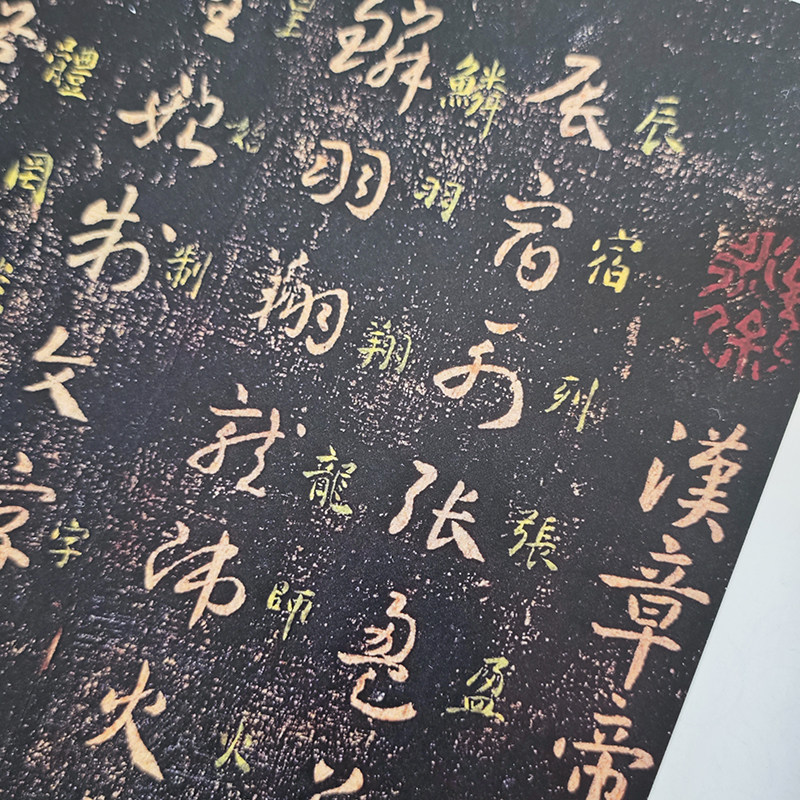 漢章帝
辰宿列張盈
辰宿列張盈
鱗羽翔龍師火
鱗羽翔龍師火
皇始制文字
皇始制字
體